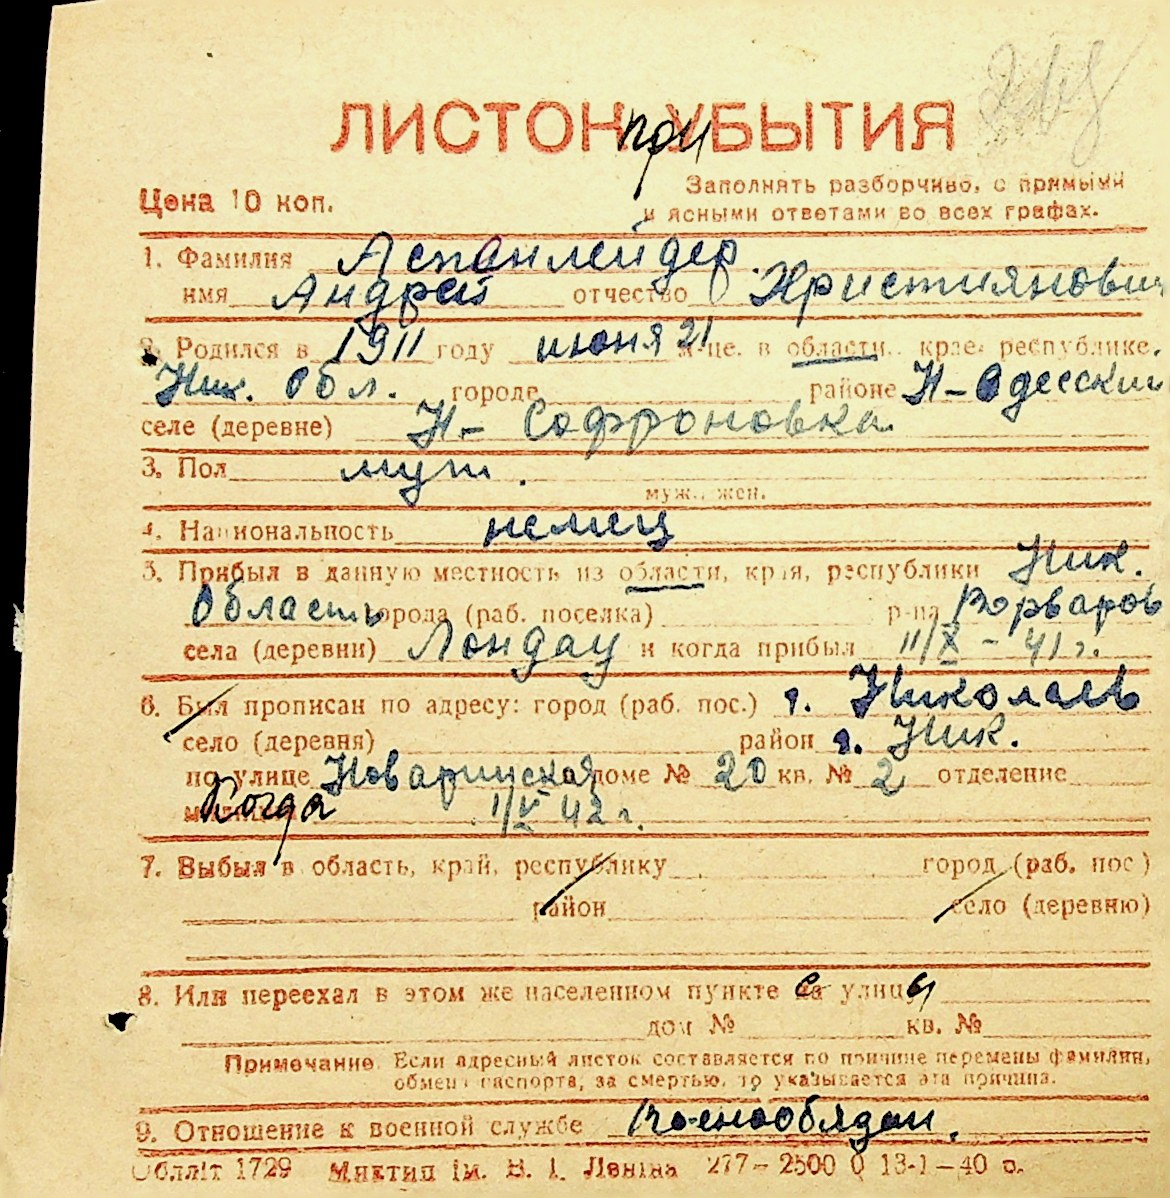 ЛИСТОК УБЫТИЯ
при
Цена 10 коп.
Заполнять разборчиво, с прямыми
и ясными ответами во всех графах.
1. Фамилия Аспенлейдер
имя Андрей отчество Християнович
2. Родился в 1911 году июня 21 м-це, в области, крае, республике,
Ник. Обл. городе районе Н-Одесский
селе (деревне) Н-Софроновка
3. Пол муж.
муж., жен.
4. Национальность немец
5. Прибыл в данную местность из области, края, республики Ник.
Область города (раб. поселка) р-на Ворваров
села (деревни) Лондау и когда прибыл 11/X-41 г.
6. Был прописан по адресу: город (раб. пос.) г. Николаев
село (деревня) район г. Ник.
по улице Новаринская доме № 20 кв. № 2 отделение
Когда 1/V 42 г.
7. Выбыл в область, край, республику город (раб. пос)
район село (деревню)
8. Или переехал в этом же населенном пункте с улицы
дом № кв. №
Примечание. Если адресный листок составляется по причине перемены фамилии,
обмена паспорта, за смертью, то указывается эта причина.
9. Отношение к военной службе Военообядан.
Облліт 1729 Миктип ім. В. І. Леніна 277–2500 0 13-I–40 р.